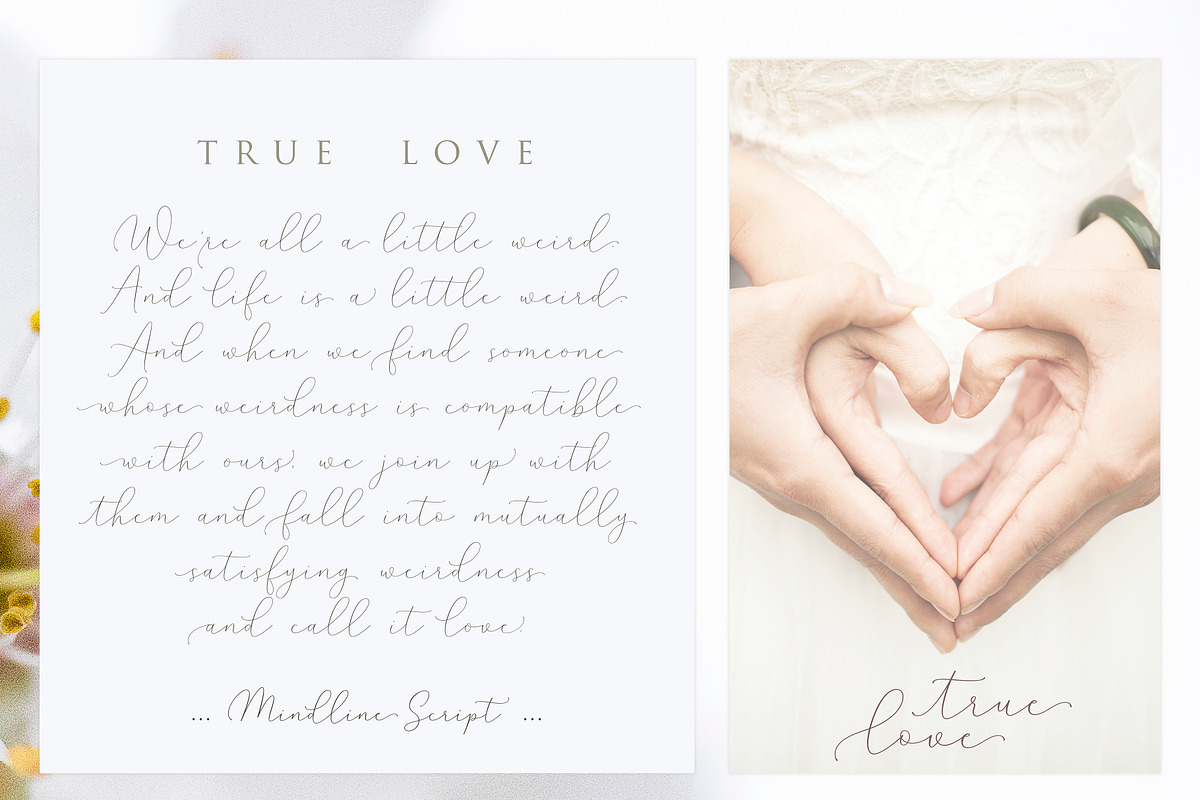 TRUE LOVE
We're all a little weird.
And life is a little weird.
And when we find someone
whose weirdness is compatible
with ours, we join up with
them and fall into mutually
satisfying weirdness
and call it love.
... Mindline Script ...
true
love